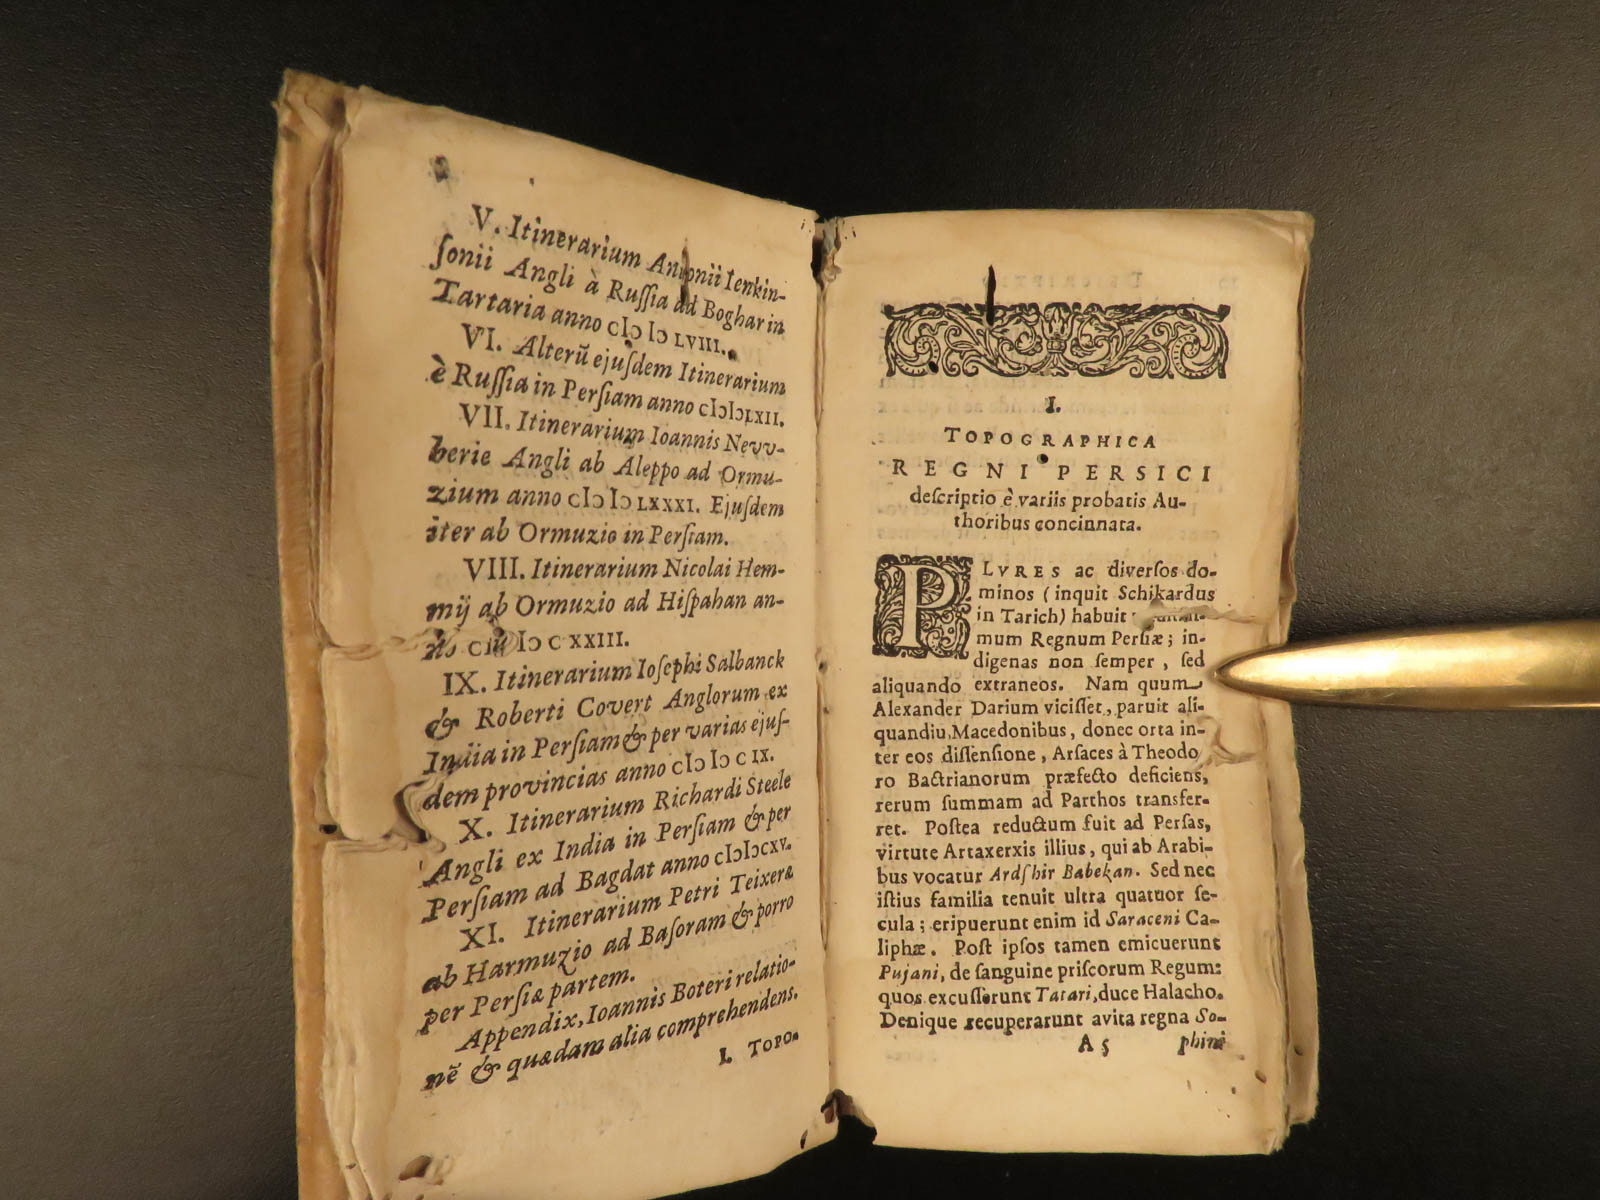 V. Itinerarium Antonii Ienkin-
ſonii Angli à Ruſſia ad Boghar in
Tartaria anno cIↄ Iↄ LVIII.
VI. Alterũ ejuſdem Itinerarium
è Ruſſia in Perſiam anno cIↄIↄLXII.
VII. Itinerarium Ioannis Nevv-
berie Angli ab Aleppo ad Ormu-
zium anno cIↄ Iↄ LXXXI. Ejuſdem
iter ab Ormuzio in Perſiam.
VIII. Itinerarium Nicolai Hem-
mij ab Ormuzio ad Hiſpahan an-
no cIↄ Iↄ C XXIII.
IX. Itinerarium Ioſephi Salbanck
& Roberti Covert Anglorum ex
India in Perſiam & per varias ejuſ-
dem provincias anno cIↄ Iↄ C IX.
X. Itinerarium Richardi Steele
Angli ex India in Perſiam & per
Perſiam ad Bagdat anno cIↄIↄCXV.
XI. Itinerarium Petri Teixeræ
ab Harmuzio ad Baſoram & porro
per Perſiæ partem.
Appendix, Ioannis Boteri relatio-
nẽ & quædam alia comprehendens.
I. TOPO-
I.
TOPOGRAPHICA
REGNI PERSICI
deſcriptio è variis probatis Au-
thoribus concinnata.
PLVRES ac diverſos do-
minos (inquit Schikardus
in Tarich) habuit
mum Regnum Perſiæ; in-
digenas non ſemper, ſed
aliquando extraneos. Nam quum
Alexander Darium viciſſet, paruit ali-
quandiu Macedonibus, donec orta in-
ter eos diſſenſione, Arſaces à Theodo
ro Bactrianorum præfecto deficiens,
rerum ſummam ad Parthos transfer-
ret. Poſtea reductum fuit ad Perſas,
virtute Artaxerxis illius, qui ab Arabi-
bus vocatur Ardſhir Babekan. Sed nec
iſtius familia tenuit ultra quatuor ſe-
cula; eripuerunt enim id Saraceni Ca-
liphæ. Poſt ipſos tamen emicuerunt
Pujani, de ſanguine priſcorum Regum:
quos excuſſerunt Tatari, duce Halacho.
Denique recuperarunt avita regna So-
A 5 phini